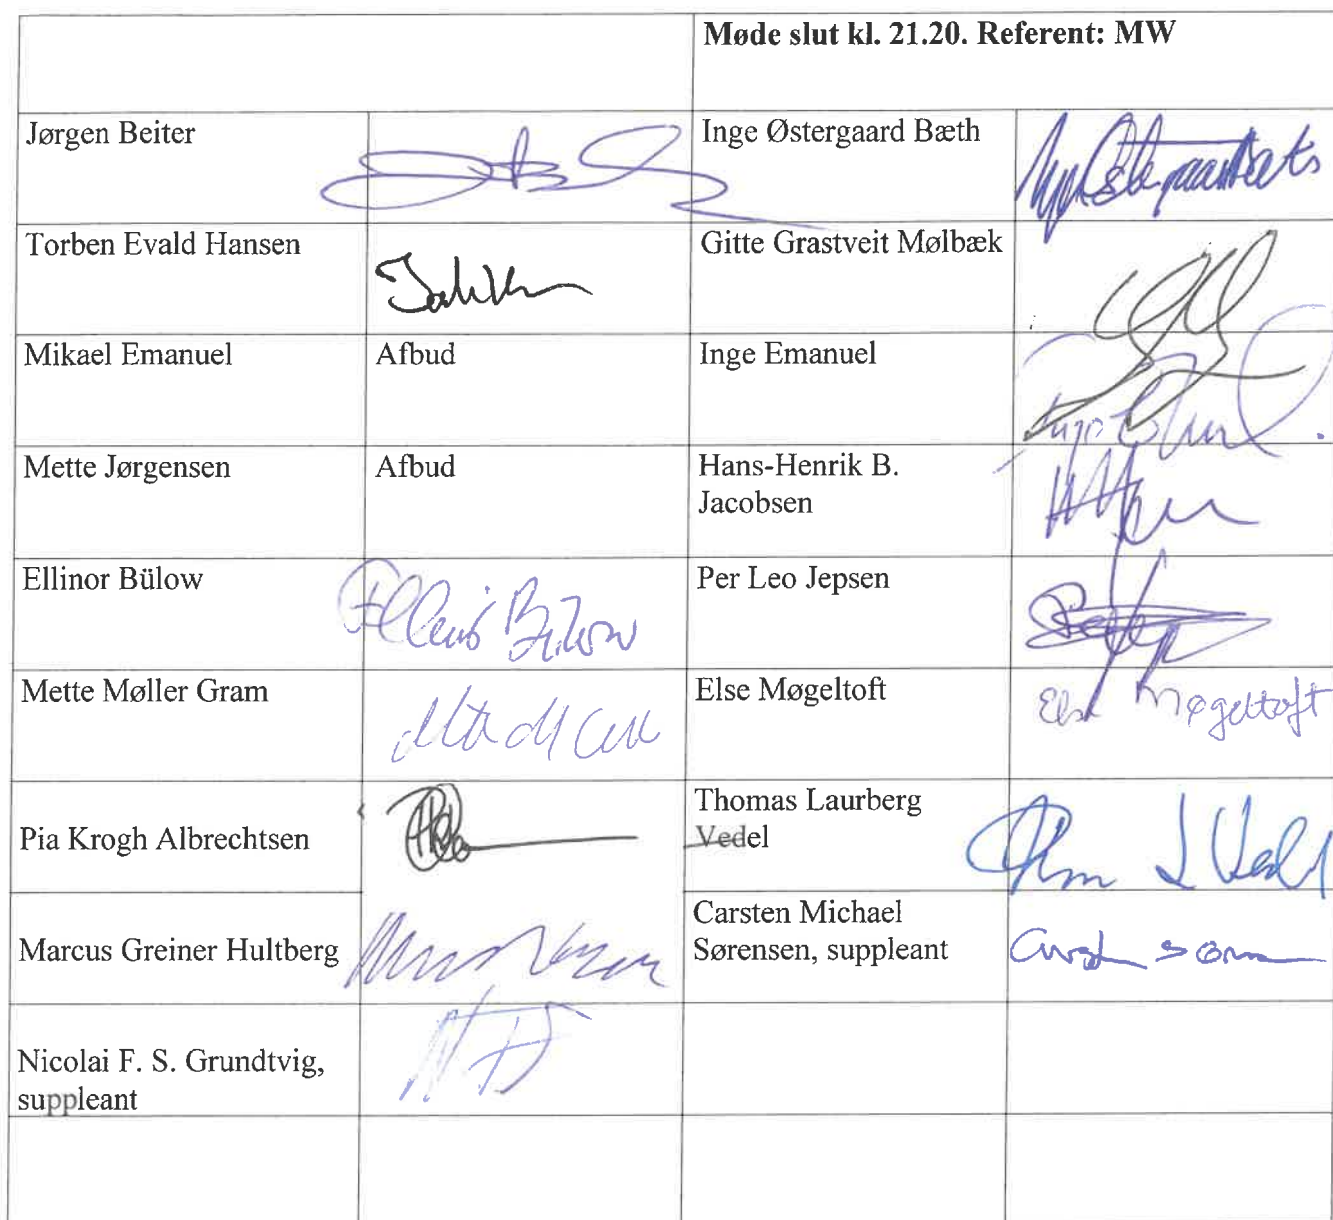 Møde slut kl. 21.20. Referent: MW
Jørgen Beiter
Inge Østergaard Bæth
Torben Evald Hansen
Gitte Grastveit Mølbæk
Mikael Emanuel
Afbud
Inge Emanuel
Mette Jørgensen
Afbud
Hans-Henrik B.
Jacobsen
Ellinor Bülow
Ellinor Bülow
Per Leo Jepsen
Mette Møller Gram
Else Møgeltoft
Else Møgeltoft
Pia Krogh Albrechtsen
Thomas Laurberg
Vedel
Marcus Greiner Hultberg
Carsten Michael
Sørensen, suppleant
Nicolai F. S. Grundtvig,
suppleant